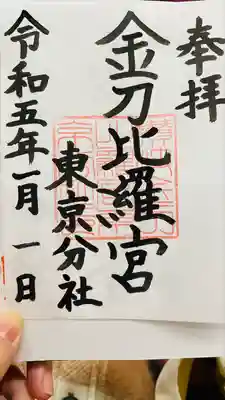 奉拝
金刀比羅宮
東京分社
令和五年一月一日